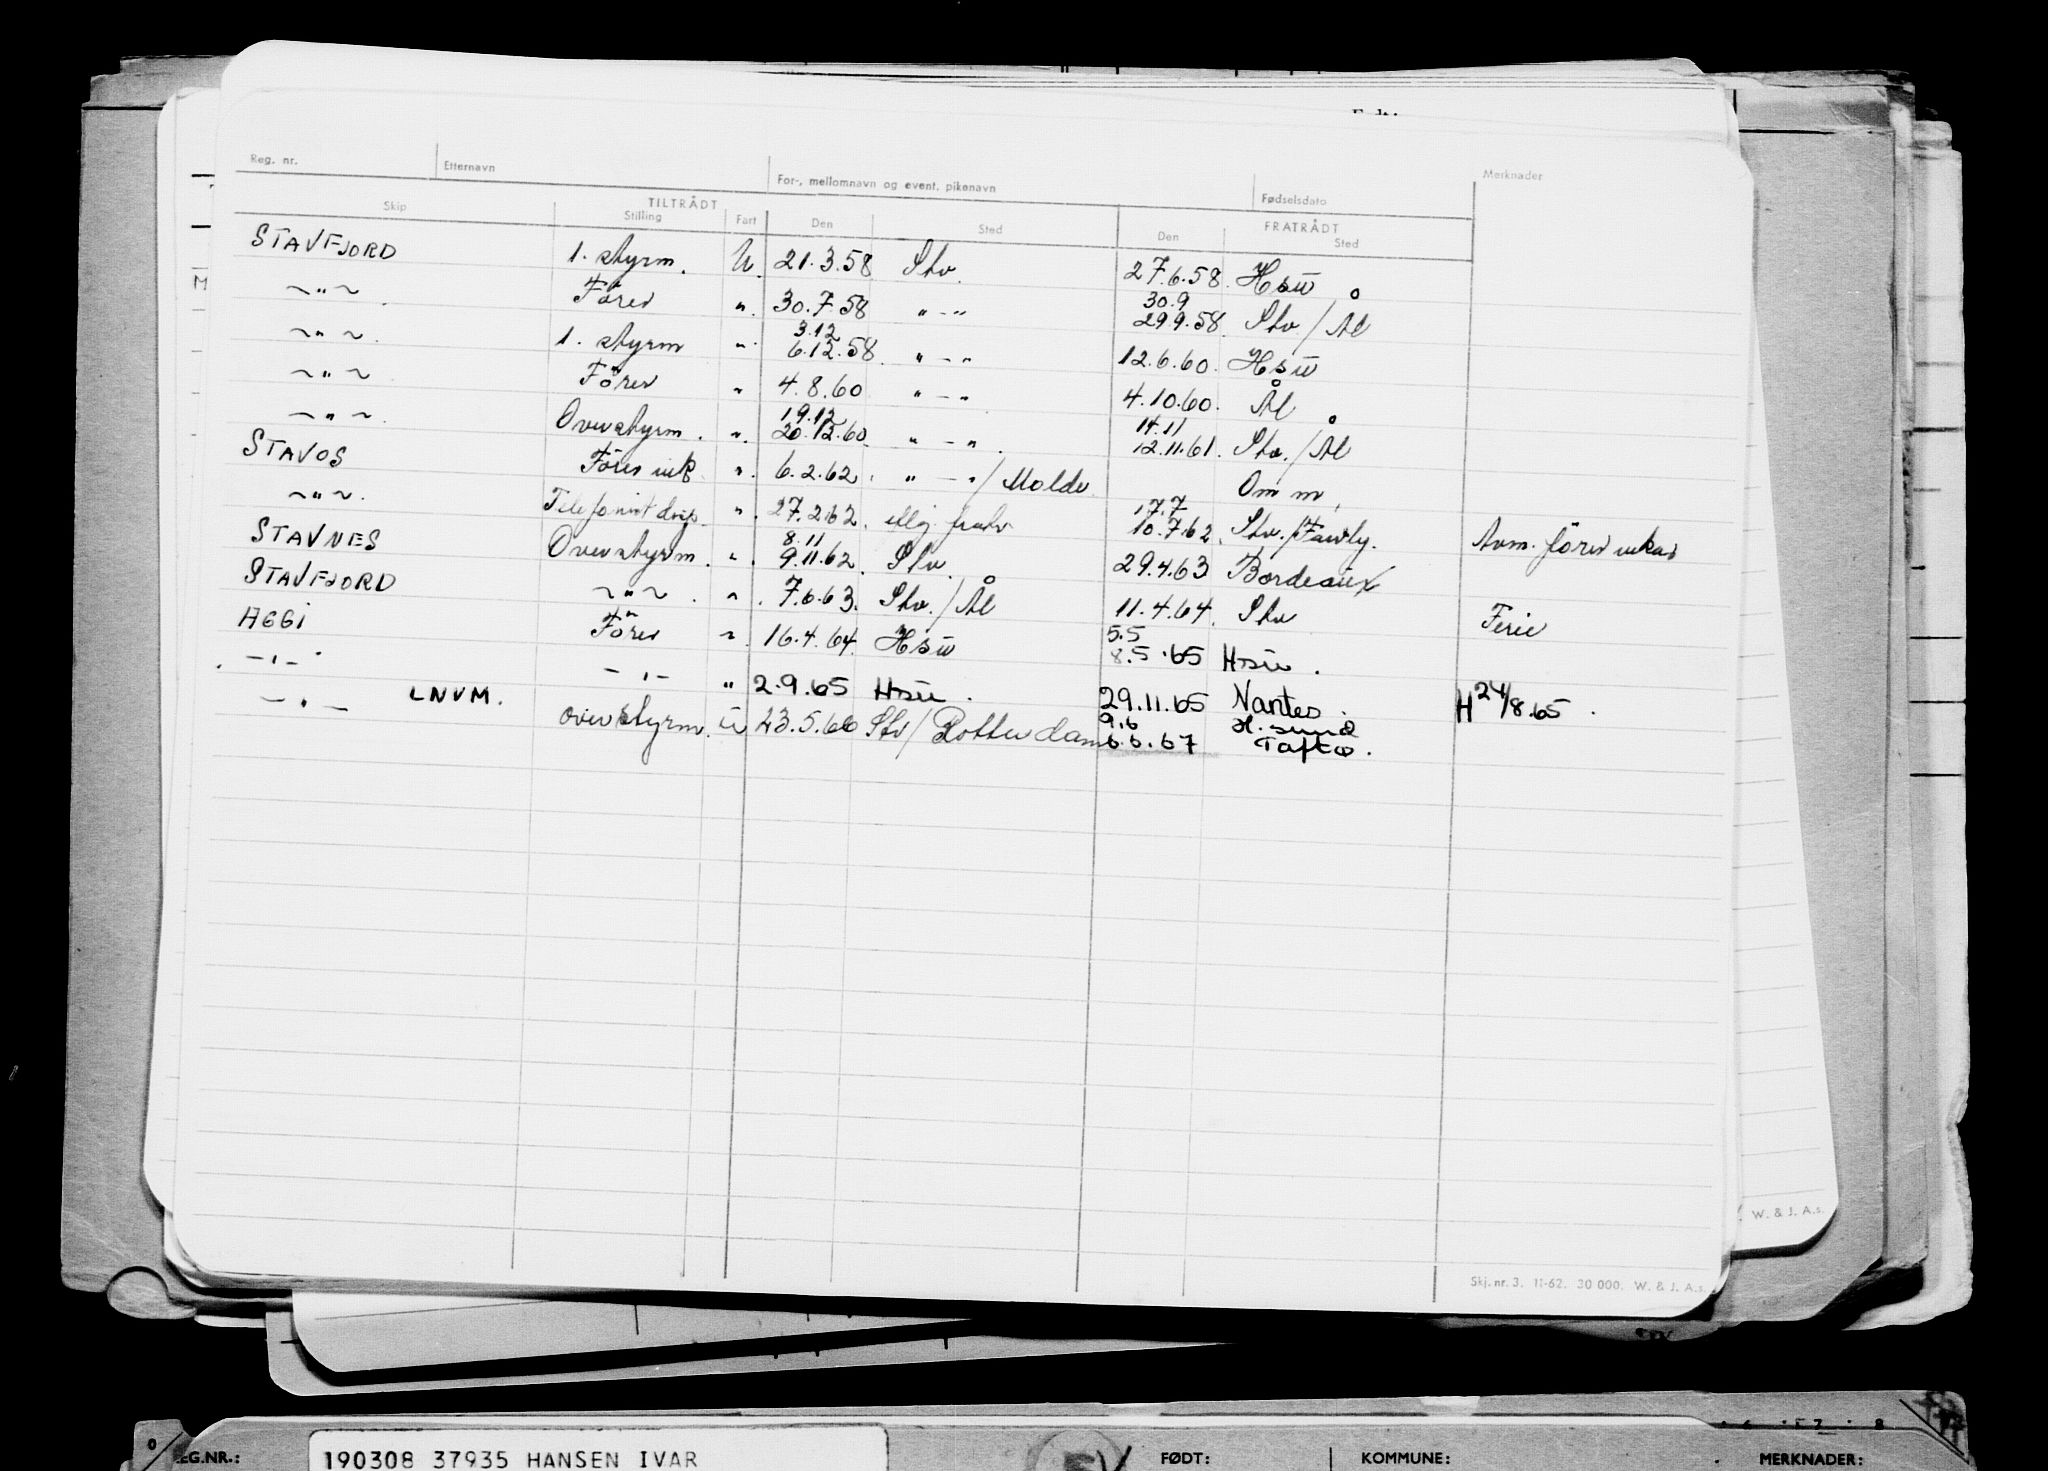 Reg. nr. Etternavn For-, mellomnavn og event. pikenavn Fødselsdato Merknader
TILTRÅDT FRATRÅDT
Skip Stilling Fart Den Sted Den Sted
STAVFJORD 1. styrm. U. 21.3.58 Stv. 27.6.58. Hsu
~"~ Förer ". 30.7.58 "-" 30.9 29.9.58. Stv./Ål
~"~. 1. styrm " 3.12 6.12.58. "-" 12.6.60. Hsu
~"~ Förer " 4.8.60 "-" 4.10.60. Ål
~"~. Overstyrm. ". 19.12 20.12.60. "-". 14.11 12.11.61. Stv./Ål
STAVOS Förer vik. ". 6.2.62. "-"/Molde Om m.
~"~. Telefonist disp. ". 27.2.62. 17.7 10.7.62. Stv./ Avm. förer vikar
STAVNES Overstyrm. ". 8.11 9.11.62. Stv. 29.4.63 Bordeaux
STAVFJORD ~"~. ". 7.6.63. Stv./Ål 11.4.64. Stv Ferie
AGGI Förer " 16.4.64. Hsu 5.5 8.5.65 Hsu.
-"- -"- " 2.9.65 Hsu. 29.11.65 Nantes. H 24/8.65.
-"- LNVM. overstyrm. U 23.5.66 Stv/Rotterdam 9.6 6.6.67 H.sund Taftø.
W. & J. A.s.
Skj. nr. 3. 11-62. 30 000. W. & J. A.s.
EG.NR.: 190308 37935 HANSEN IVAR FØDT: KOMMUNE: MERKNADER: